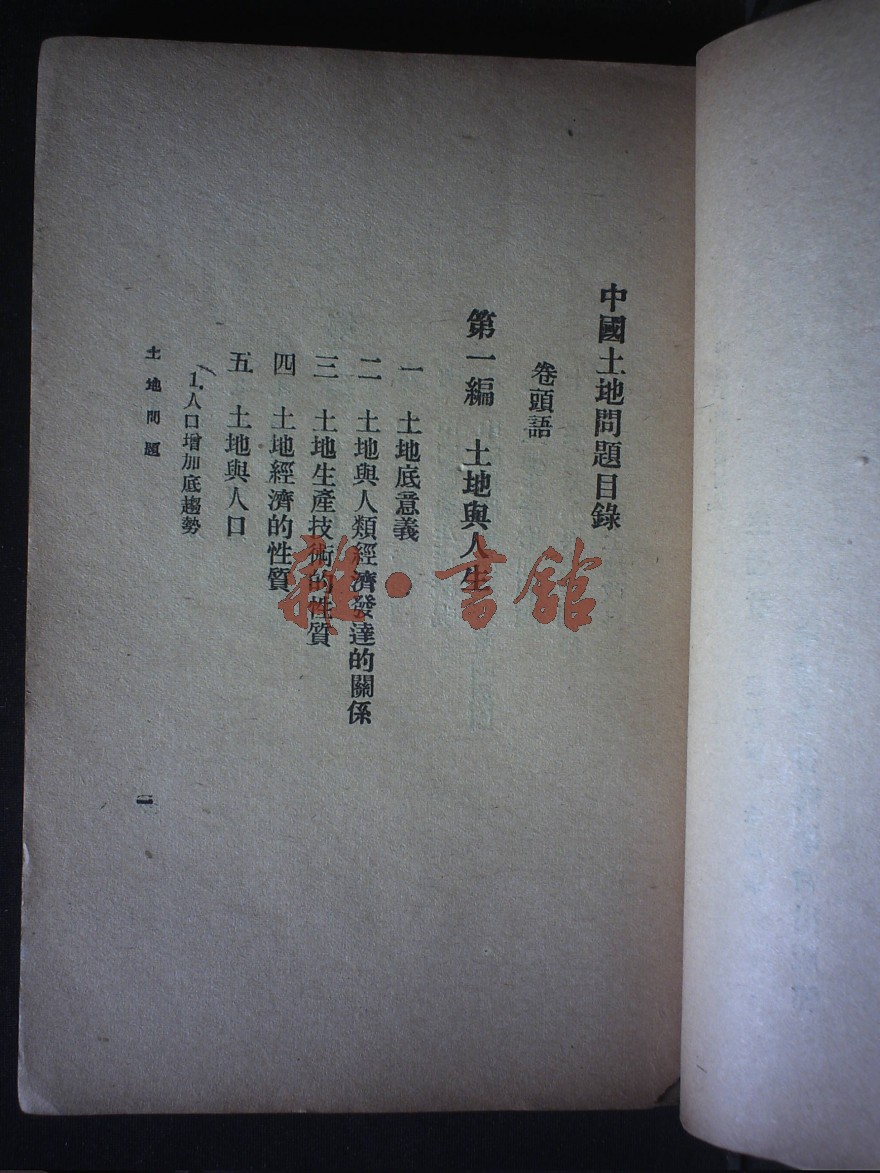 中國土地問題目錄
卷頭語
第一編 土地與人生
一 土地底意義
二 土地與人類經濟發達的關係
三 土地生產技術的性質
四 土地經濟的性質
五 土地與人口
1.人口增加底趨勢
土地問題
一
雜·書館